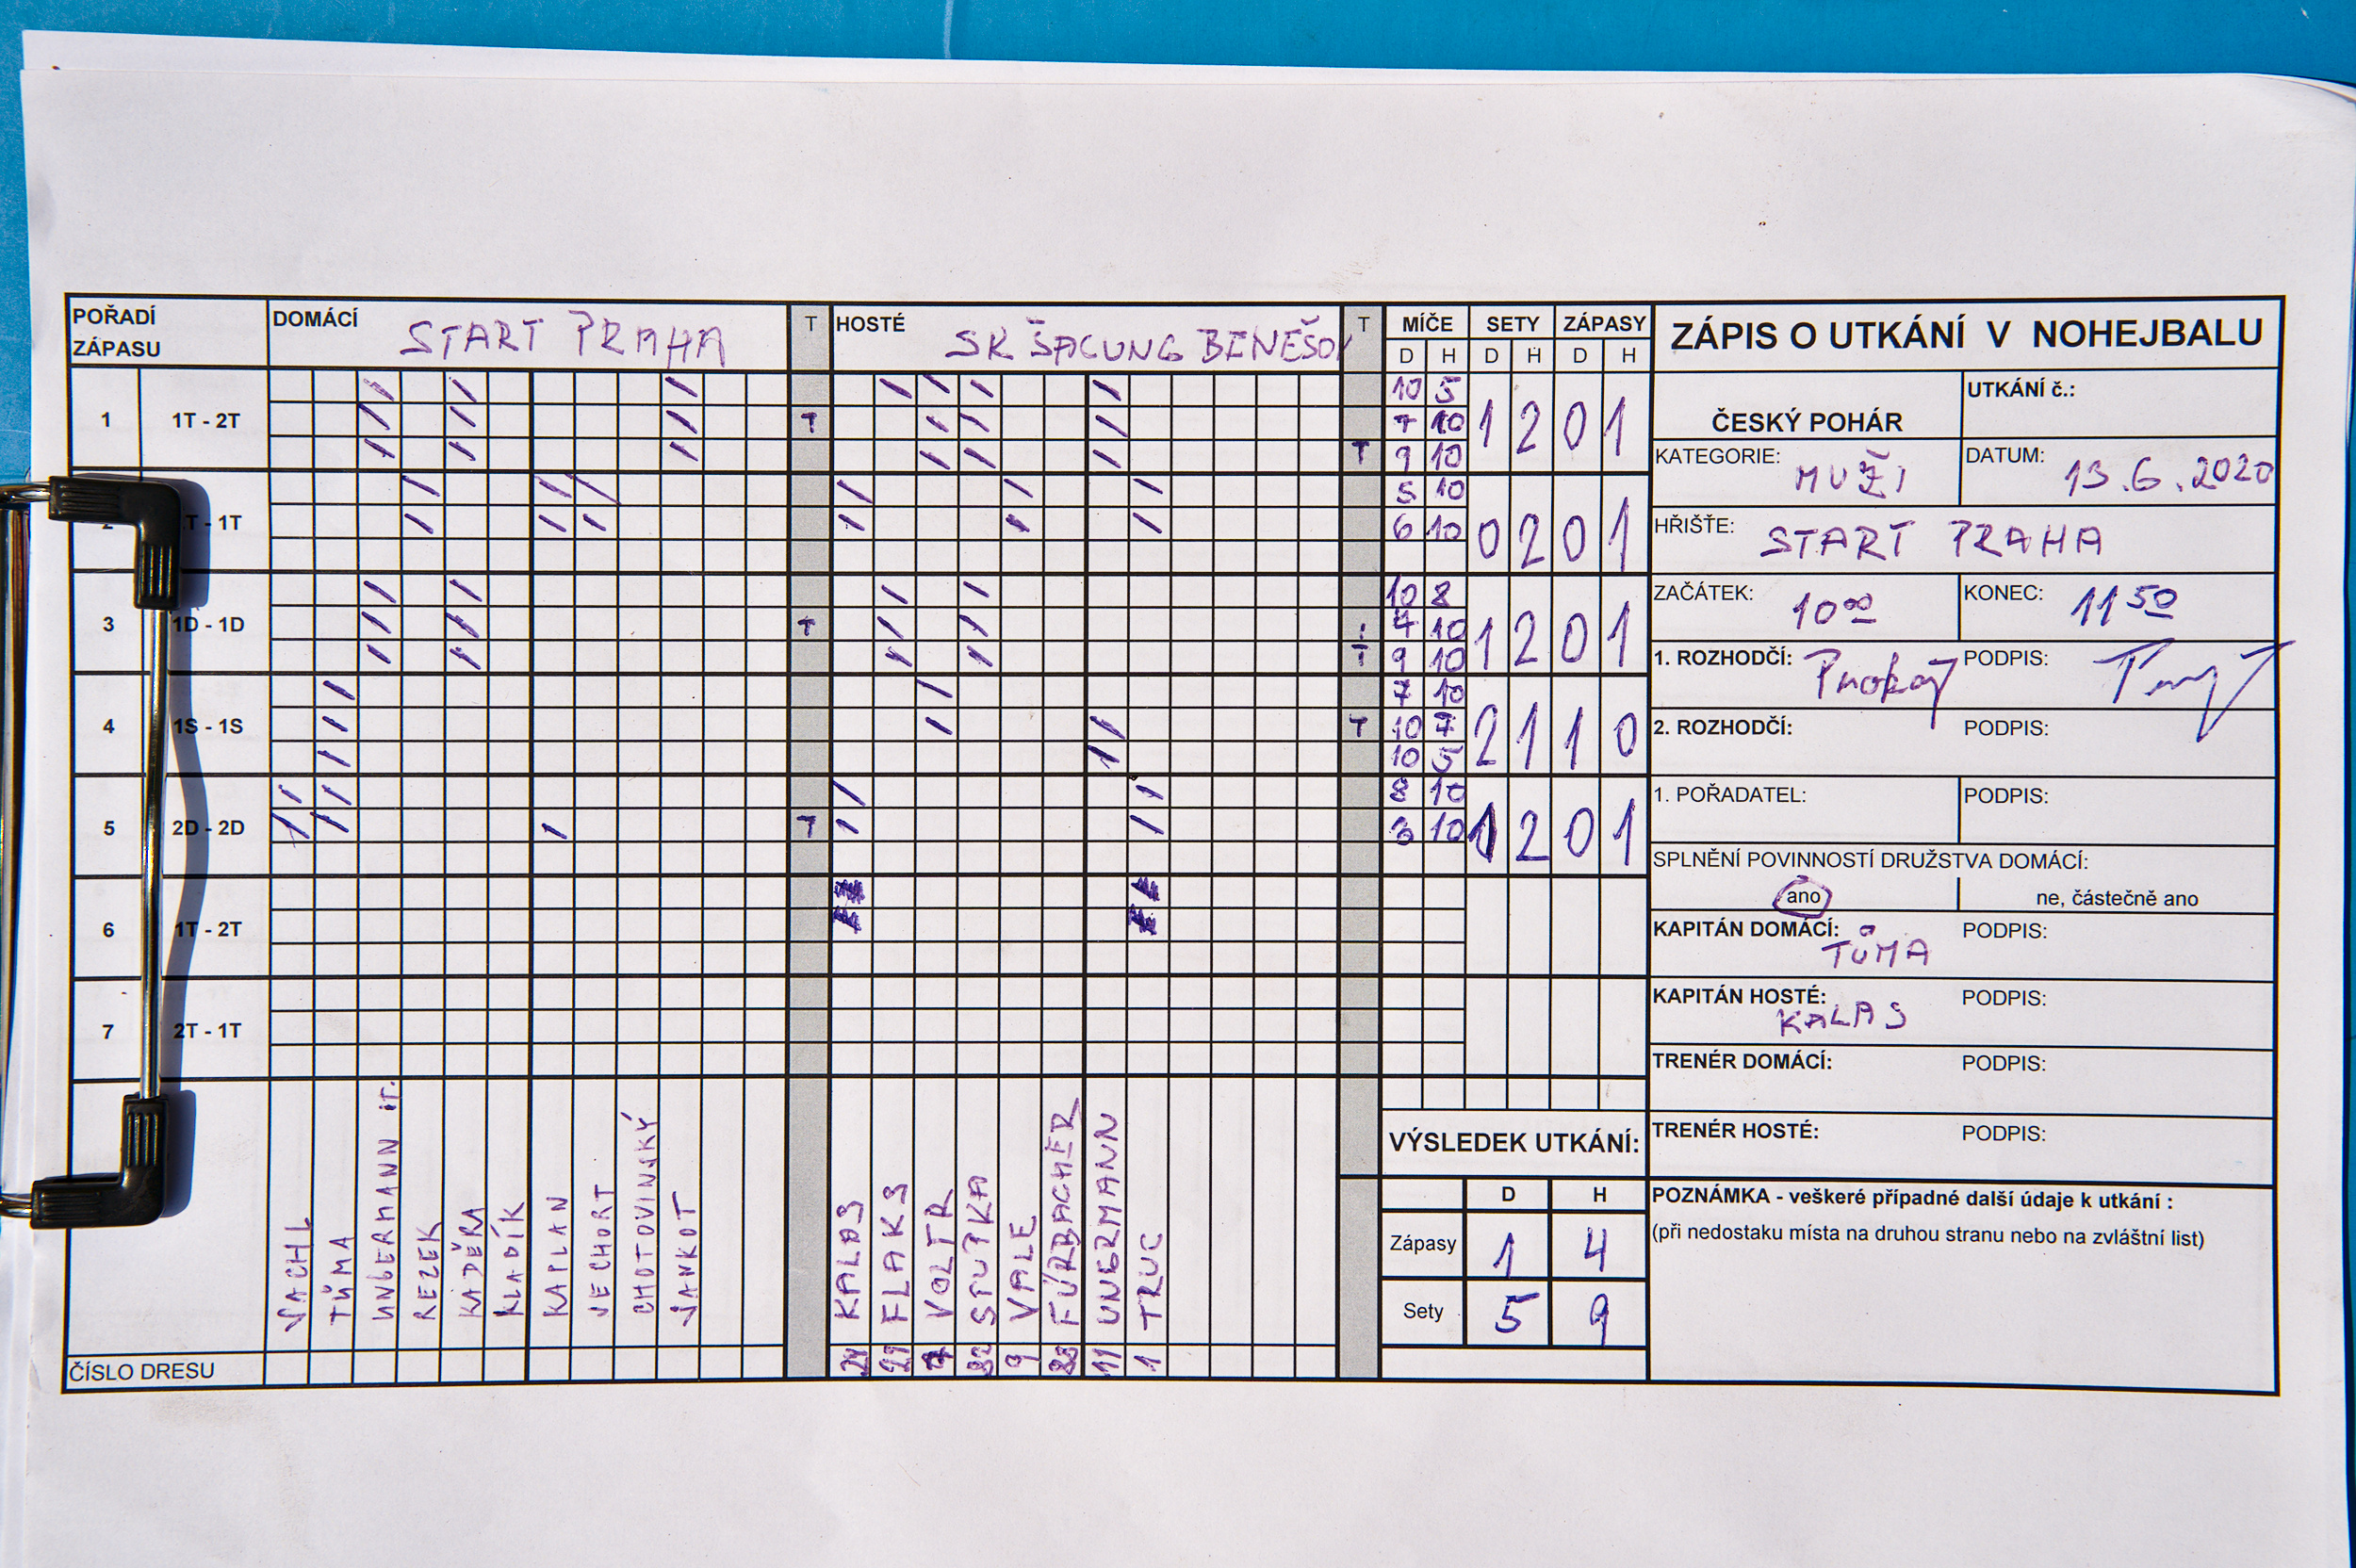 POŘADÍ ZÁPASU DOMÁCÍ START PRAHA T HOSTÉ SK ŠACUNG BENEŠOV T MÍČE SETY ZÁPASY
D H D H D H
1 1T - 2T T T 10 5 7 10 9 10 1 2 0 1
2 T - 1T 5 10 6 10 0 2 0 1
3 1D - 1D T T 10 8 7 10 9 10 1 2 0 1
4 1S - 1S T 7 10 10 7 10 5 2 1 1 0
5 2D - 2D T 8 10 3 10 1 2 0 1
6 1T - 2T
7 2T - 1T
VACHL
TŮMA
UNGERMANN ST.
REZEK
KADĚRA
KLADÍK
KAPLAN
JECHORT
CHOTOVINSKÝ
JANKOT
KALAS
FLAKS
VOLTR
STUTKA
VALE
FÜRBACHER
UNGRMANN
TRUC
ČÍSLO DRESU 24 29 7 32 9 11 1
VÝSLEDEK UTKÁNÍ:
D H
Zápasy 1 4
Sety 5 9
ZÁPIS O UTKÁNÍ V NOHEJBALU
ČESKÝ POHÁR UTKÁNÍ č.:
KATEGORIE: MUŽI DATUM: 13.6.2020
HŘIŠŤE: START PRAHA
ZAČÁTEK: 10 00 KONEC: 11 50
1. ROZHODČÍ: PODPIS:
2. ROZHODČÍ: PODPIS:
1. POŘADATEL: PODPIS:
SPLNĚNÍ POVINNOSTÍ DRUŽSTVA DOMÁCÍ:
ano ne, částečně ano
KAPITÁN DOMÁCÍ: TŮMA PODPIS:
KAPITÁN HOSTÉ: KALAS PODPIS:
TRENÉR DOMÁCÍ: PODPIS:
TRENÉR HOSTÉ: PODPIS:
POZNÁMKA - veškeré případné další údaje k utkání :
(při nedostaku místa na druhou stranu nebo na zvláštní list)